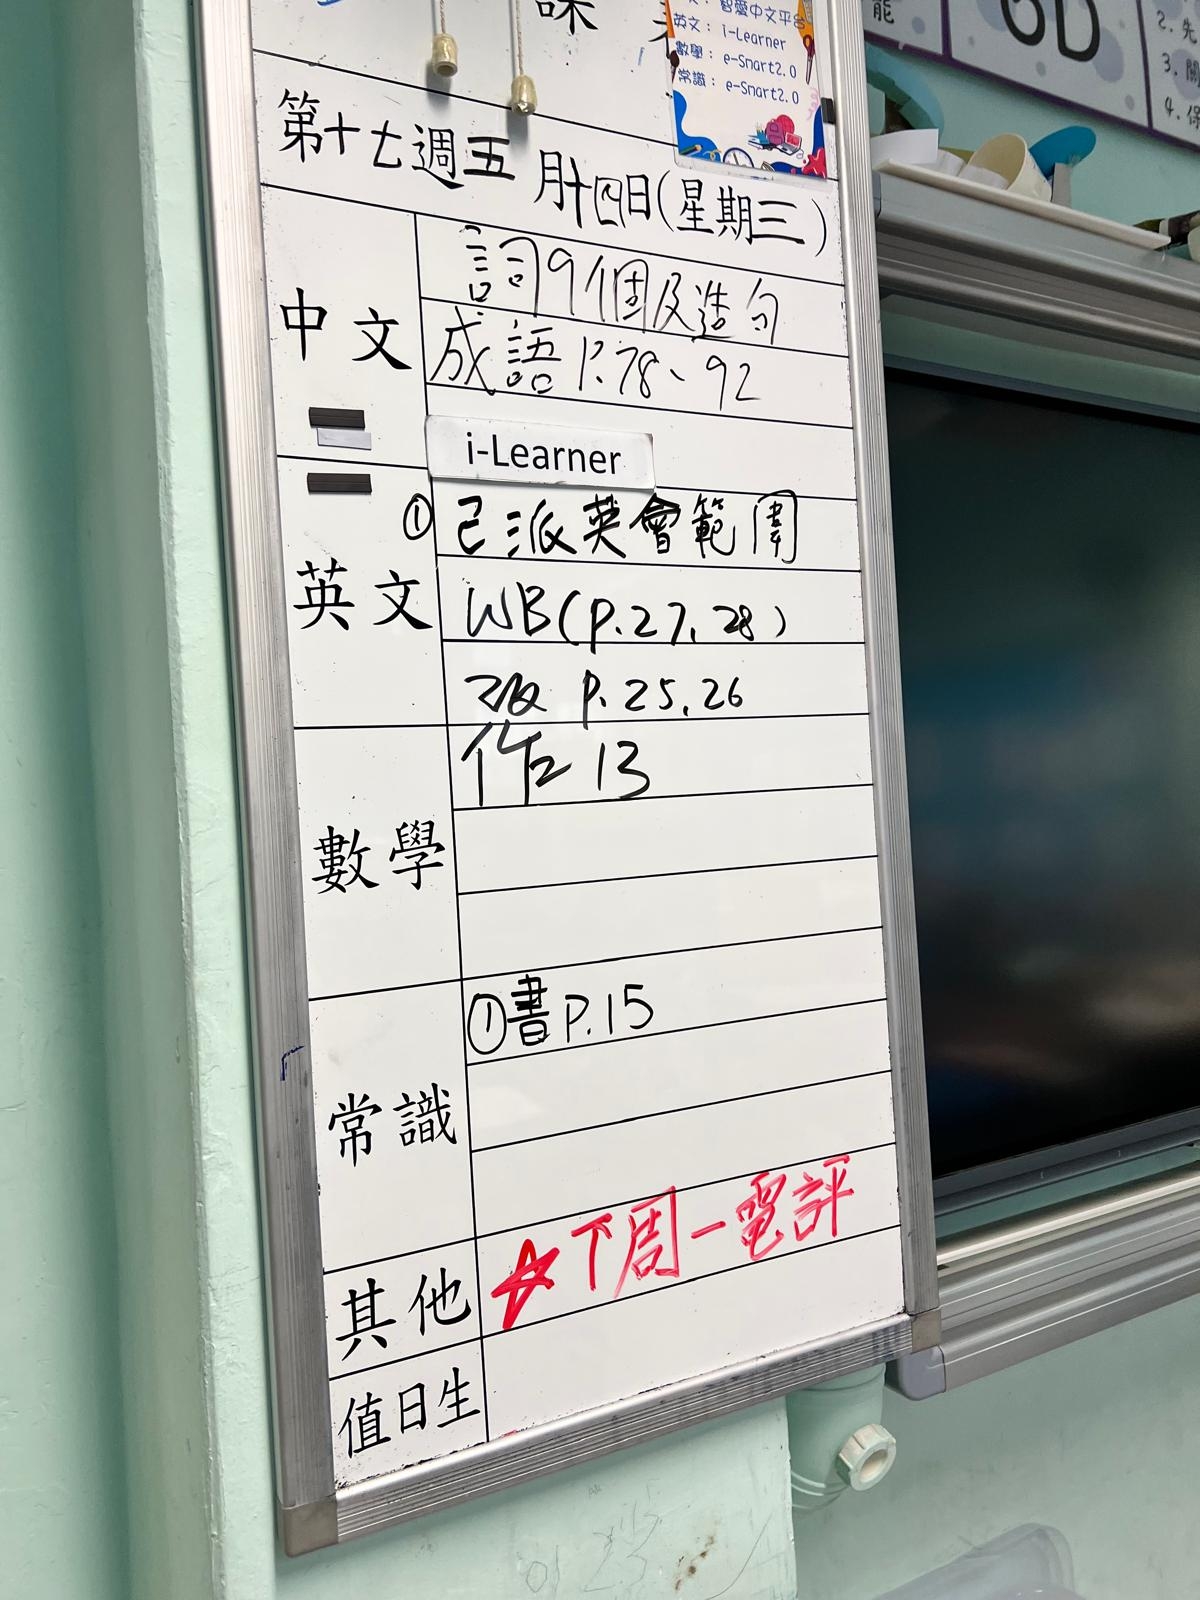 課
智愛中文平台
英文： i-Learner
數學： e-Smart2.0
常識： e-Smart2.0
能
6D
2. 先
3.
4. 保
第十七週五月十四日(星期三)
中文
詞9個及造句
成語 P.78、92
i-Learner
英文
① 已派英會範圍
WB(P.27, 28)
P.25, 26
數學
作 13
常識
①書P.15
其他
☆下周一電評
值日生